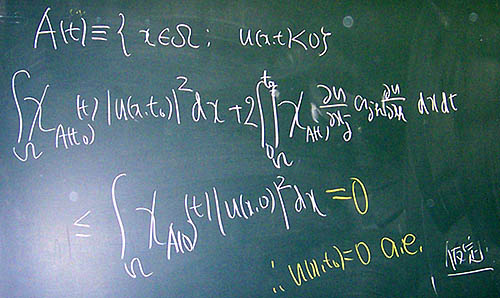 A(t)≡{ x∈Ω ; u(x,t)<0}
∫_Ω χ_{A(t₀)}(t) |u(x,t₀)|² dx + 2∫₀^{t₀}∫_Ω χ_{A(t)} ∂u/∂x_j a_{jk} ∂u/∂x_k dx dt
≤ ∫_Ω χ_{A(0)}(t) |u(x,0)|² dx = 0
∴ u(x,t₀)=0 a.e.
仮定